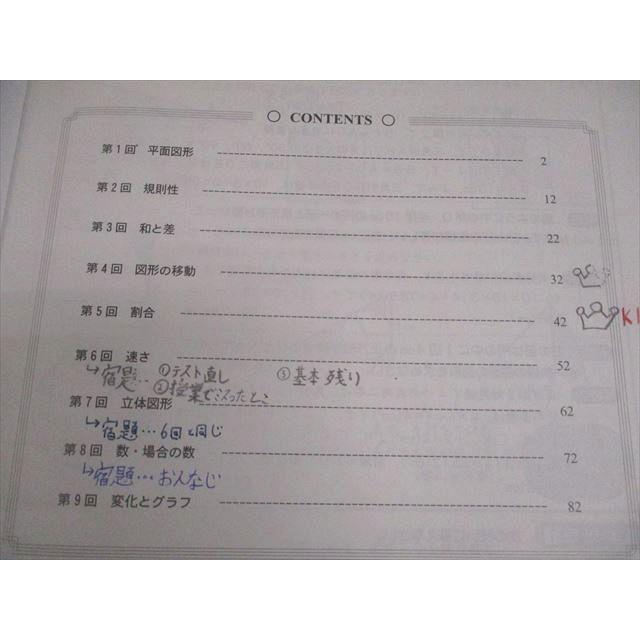 ○ CONTENTS ○
第1回 平面図形 2
第2回 規則性 12
第3回 和と差 22
第4回 図形の移動 32
第5回 割合 42 KI
第6回 速さ 52
↳宿題‥ ①テスト直し ③基本残り
②授業で
第7回 立体図形 62
↳宿題…6回と同じ
第8回 数・場合の数 72
↳宿題…おんなじ
第9回 変化とグラフ 82